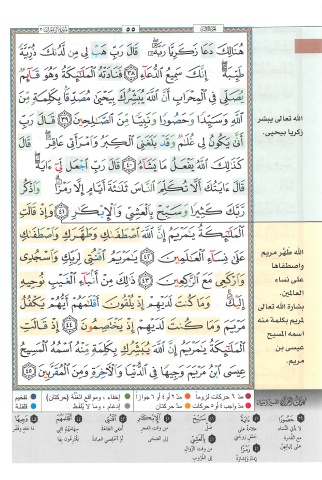 ٥٥
هُنَالِكَ دَعَا زَكَرِيَّا رَبَّهُۥ ۖ قَالَ رَبِّ هَبْ لِى مِن لَّدُنكَ ذُرِّيَّةً
طَيِّبَةً ۖ إِنَّكَ سَمِيعُ ٱلدُّعَآءِ ٣٨ فَنَادَتْهُ ٱلْمَلَـٰٓئِكَةُ وَهُوَ قَآئِمٌ
يُصَلِّى فِى ٱلْمِحْرَابِ أَنَّ ٱللَّهَ يُبَشِّرُكَ بِيَحْيَىٰ مُصَدِّقًۢا بِكَلِمَةٍ مِّنَ
ٱللَّهِ وَسَيِّدًا وَحَصُورًا وَنَبِيًّا مِّنَ ٱلصَّـٰلِحِينَ ٣٩ قَالَ رَبِّ
أَنَّىٰ يَكُونُ لِى غُلَـٰمٌ وَقَدْ بَلَغَنِىَ ٱلْكِبَرُ وَٱمْرَأَتِى عَاقِرٌ ۖ قَالَ
كَذَٰلِكَ ٱللَّهُ يَفْعَلُ مَا يَشَآءُ ٤٠ قَالَ رَبِّ ٱجْعَل لِّىٓ ءَايَةً ۖ
قَالَ ءَايَتُكَ أَلَّا تُكَلِّمَ ٱلنَّاسَ ثَلَـٰثَةَ أَيَّامٍ إِلَّا رَمْزًا ۗ وَٱذْكُر
رَّبَّكَ كَثِيرًا وَسَبِّحْ بِٱلْعَشِىِّ وَٱلْإِبْكَـٰرِ ٤١ وَإِذْ قَالَتِ
ٱلْمَلَـٰٓئِكَةُ يَـٰمَرْيَمُ إِنَّ ٱللَّهَ ٱصْطَفَىٰكِ وَطَهَّرَكِ وَٱصْطَفَىٰكِ
عَلَىٰ نِسَآءِ ٱلْعَـٰلَمِينَ ٤٢ يَـٰمَرْيَمُ ٱقْنُتِى لِرَبِّكِ وَٱسْجُدِى
وَٱرْكَعِى مَعَ ٱلرَّٰكِعِينَ ٤٣ ذَٰلِكَ مِنْ أَنۢبَآءِ ٱلْغَيْبِ نُوحِيهِ
إِلَيْكَ ۚ وَمَا كُنتَ لَدَيْهِمْ إِذْ يُلْقُونَ أَقْلَـٰمَهُمْ أَيُّهُمْ يَكْفُلُ
مَرْيَمَ وَمَا كُنتَ لَدَيْهِمْ إِذْ يَخْتَصِمُونَ ٤٤ إِذْ قَالَتِ
ٱلْمَلَـٰٓئِكَةُ يَـٰمَرْيَمُ إِنَّ ٱللَّهَ يُبَشِّرُكِ بِكَلِمَةٍ مِّنْهُ ٱسْمُهُ ٱلْمَسِيحُ
عِيسَى ٱبْنُ مَرْيَمَ وَجِيهًا فِى ٱلدُّنْيَا وَٱلْـَٔاخِرَةِ وَمِنَ ٱلْمُقَرَّبِينَ ٤٥
الله تعالى يبشر
زكريا بيحيى.
الله طهّر مريم
واصطفاها
على نساء
العالمين.
بشارة الله تعالى
لمريم بكلمة منه
اسمه المسيح
عيسى بن
مريم.
مدّ ٦ حركات لزوماً مدّ ٢ أو ٤ أو ٦ جوازاً إخفاء، ومواقع الغُنَّة (حركتان) تفخيم
مدّ واجب ٤ أو ٥ حركات مدّ حركتان إدغام، وما لا يُلفَظ قلقلة